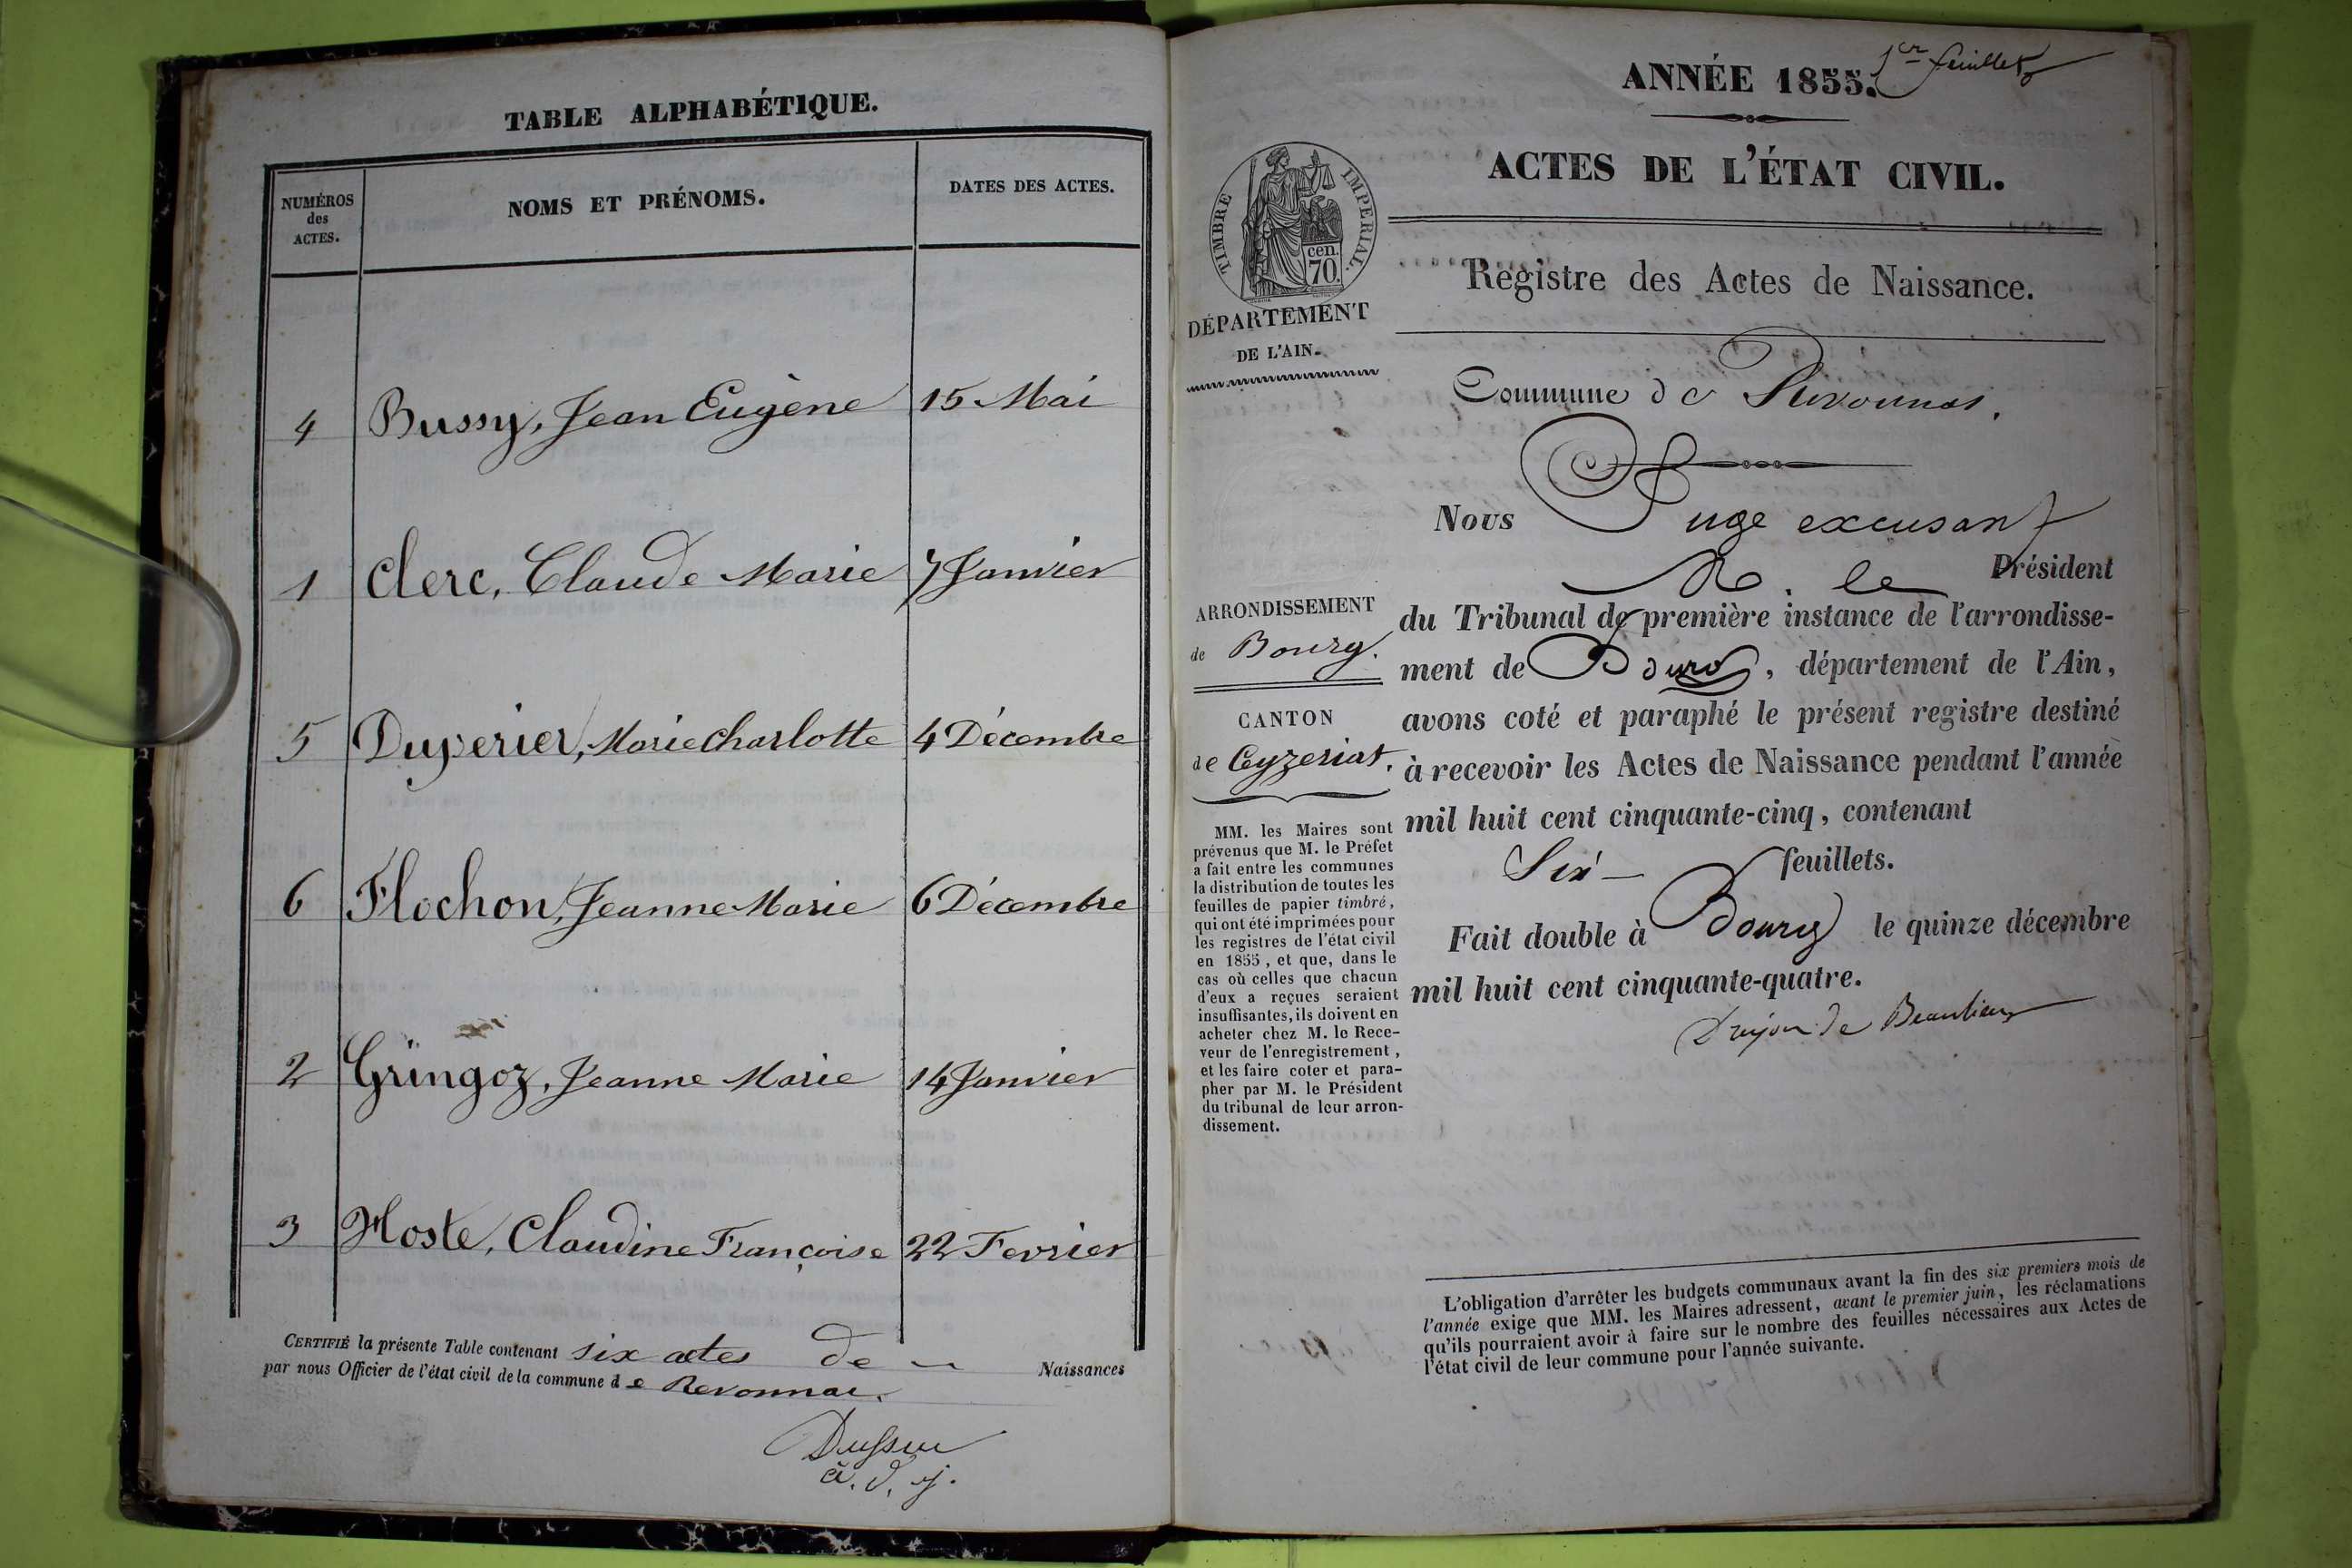 TABLE ALPHABÉTIQUE.
NUMÉROS
des
ACTES.
NOMS ET PRÉNOMS.
DATES DES ACTES.
4 Bussy, Jean Eugène 15 Mai
1 Clerc, Claude Marie 7 Janvier
5 Duperier, Marie Charlotte 4 Décembre
6 Flochon, Jeanne Marie 6 Décembre
2 Gringoz, Jeanne Marie 14 Janvier
3 Hoste, Claudine Françoise 22 Fevrier
CERTIFIÉ la présente Table contenant six actes de Naissances
par nous Officier de l'état civil de la commune de Revonnas.
a. d. j.
1er feuillet
ANNÉE 1855.
ACTES DE L'ÉTAT CIVIL.
TIMBRE IMPERIAL.
cen.
70.
DÉPARTEMENT
DE L'AIN.
Registre des Actes de Naissance.
Commune de Revonnas.
Nous Juge excusant
M. le Président
ARRONDISSEMENT
de Bourg.
CANTON
de Ceyzeriat.
du Tribunal de première instance de l'arrondisse-
ment de Bourg, département de l'Ain,
avons coté et paraphé le présent registre destiné
à recevoir les Actes de Naissance pendant l'année
mil huit cent cinquante-cinq, contenant
Six feuillets.
Fait double à Bourg le quinze décembre
mil huit cent cinquante-quatre.
Drujon de Beaulieu
MM. les Maires sont
prévenus que M. le Préfet
a fait entre les communes
la distribution de toutes les
feuilles de papier timbré,
qui ont été imprimées pour
les registres de l'état civil
en 1855, et que, dans le
cas où celles que chacun
d'eux a reçues seraient
insuffisantes, ils doivent en
acheter chez M. le Rece-
veur de l'enregistrement,
et les faire coter et para-
pher par M. le Président
du tribunal de leur arron-
dissement.
L'obligation d'arrêter les budgets communaux avant la fin des six premiers mois de
l'année exige que MM. les Maires adressent, avant le premier juin, les réclamations
qu'ils pourraient avoir à faire sur le nombre des feuilles nécessaires aux Actes de
l'état civil de leur commune pour l'année suivante.